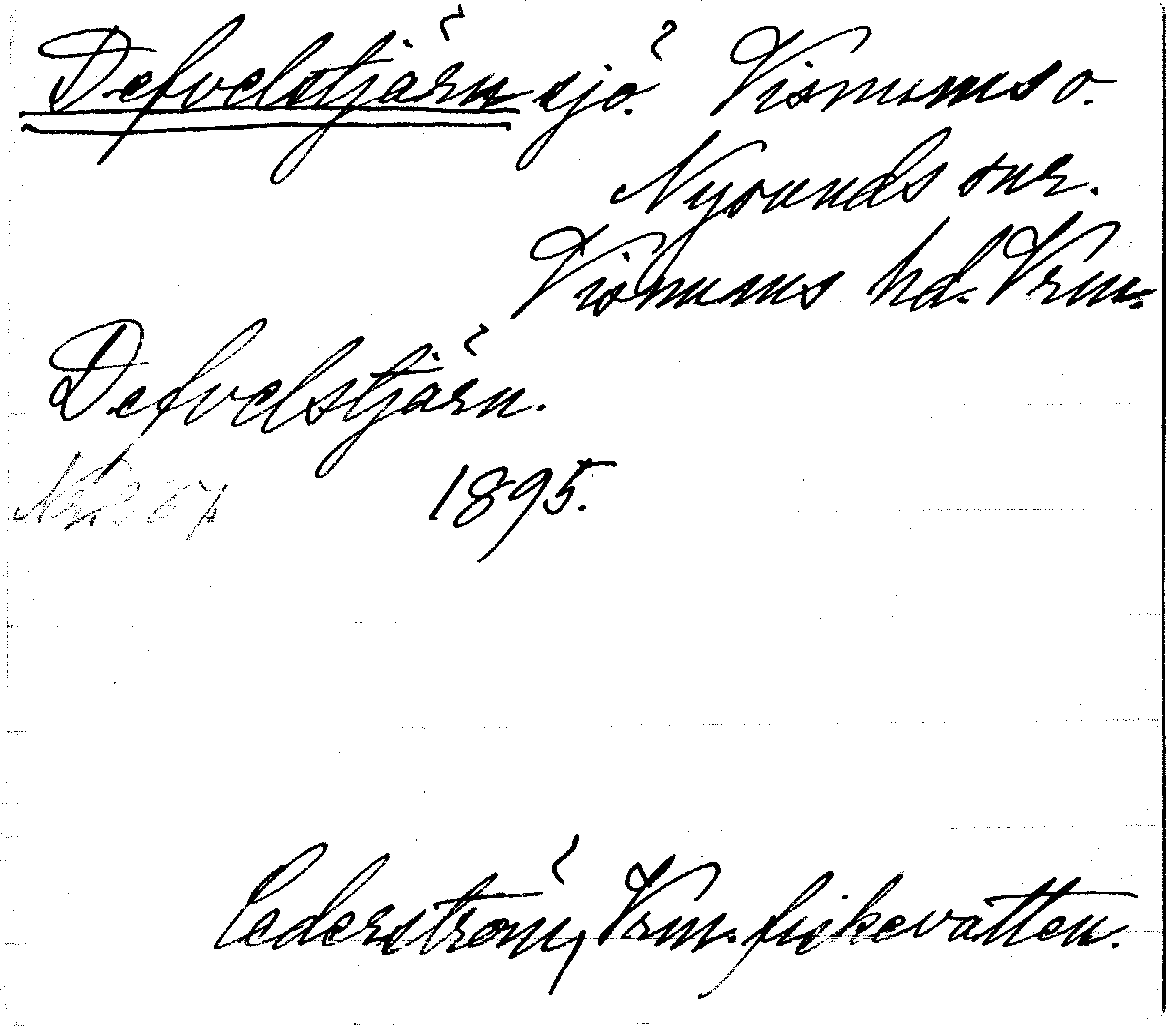 Defvelstjärn sjö. Visnums o.
Nysunds snr.
Visnums hd. Vrm.
Defvelstjärn.
1895.
Cederström, Vrm. fiskevatten.